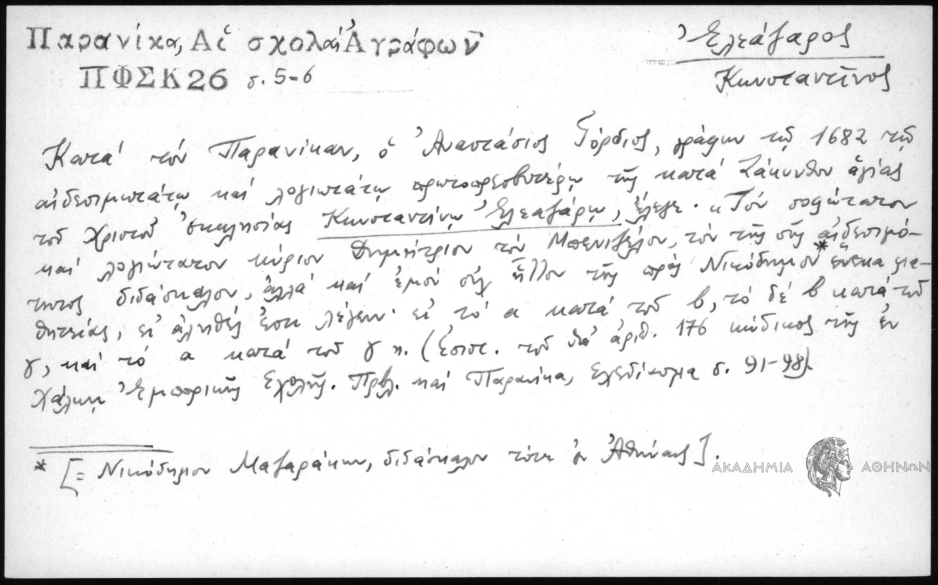 Παρανίκα, Αἱ σχολαί Ἀγράφων
ΠΦΣΚ26 σ. 5-6
Ἐλεάζαρος
Κωνσταντῖνος
Κατά τόν Παρανίκαν, ὁ Ἀναστάσιος Γόρδιος, γράφων τῷ 1682 τῷ
αἰδεσιμωτάτῳ καί λογιωτάτῳ πρωτοπρεσβυτέρῳ τῆς κατά Ζάκυνθον ἁγίας
τοῦ Χριστοῦ ἐκκλησίας Κωνσταντίνῳ Ἐλεαζάρῳ, ἔλεγε· «Τόν σοφώτατον
καί λογιώτατον κύριον Δημήτριον τόν Μπενιζέλον, τόν τῆς σῆς αἰδεσιμό-
τητος διδάσκαλον, ἀλλά καί ἐμόν οὐχ ἧττον τῆς πρός Νικόδημον* ἕνεκα μα-
θητείας, εἰ ἀληθές ἐστι λέγειν· εἰ τό α κατά τοῦ β, τό δέ β κατά τοῦ
γ, καί τό α κατά τοῦ γ». (Ἐπιστ. τοῦ ὑπ' ἀριθ. 176 κώδικος τῆς ἐν
Χάλκῃ Ἐμπορικῆς Σχολῆς. Πρβλ. καί Παρανίκα, Σχεδίασμα σ. 91-98).
* [= Νικόδημον Μαζαράκην, διδάσκαλον τότε ἐν Ἀθήναις].
ΑΚΑΔΗΜΙΑ ΑΘΗΝΩΝ